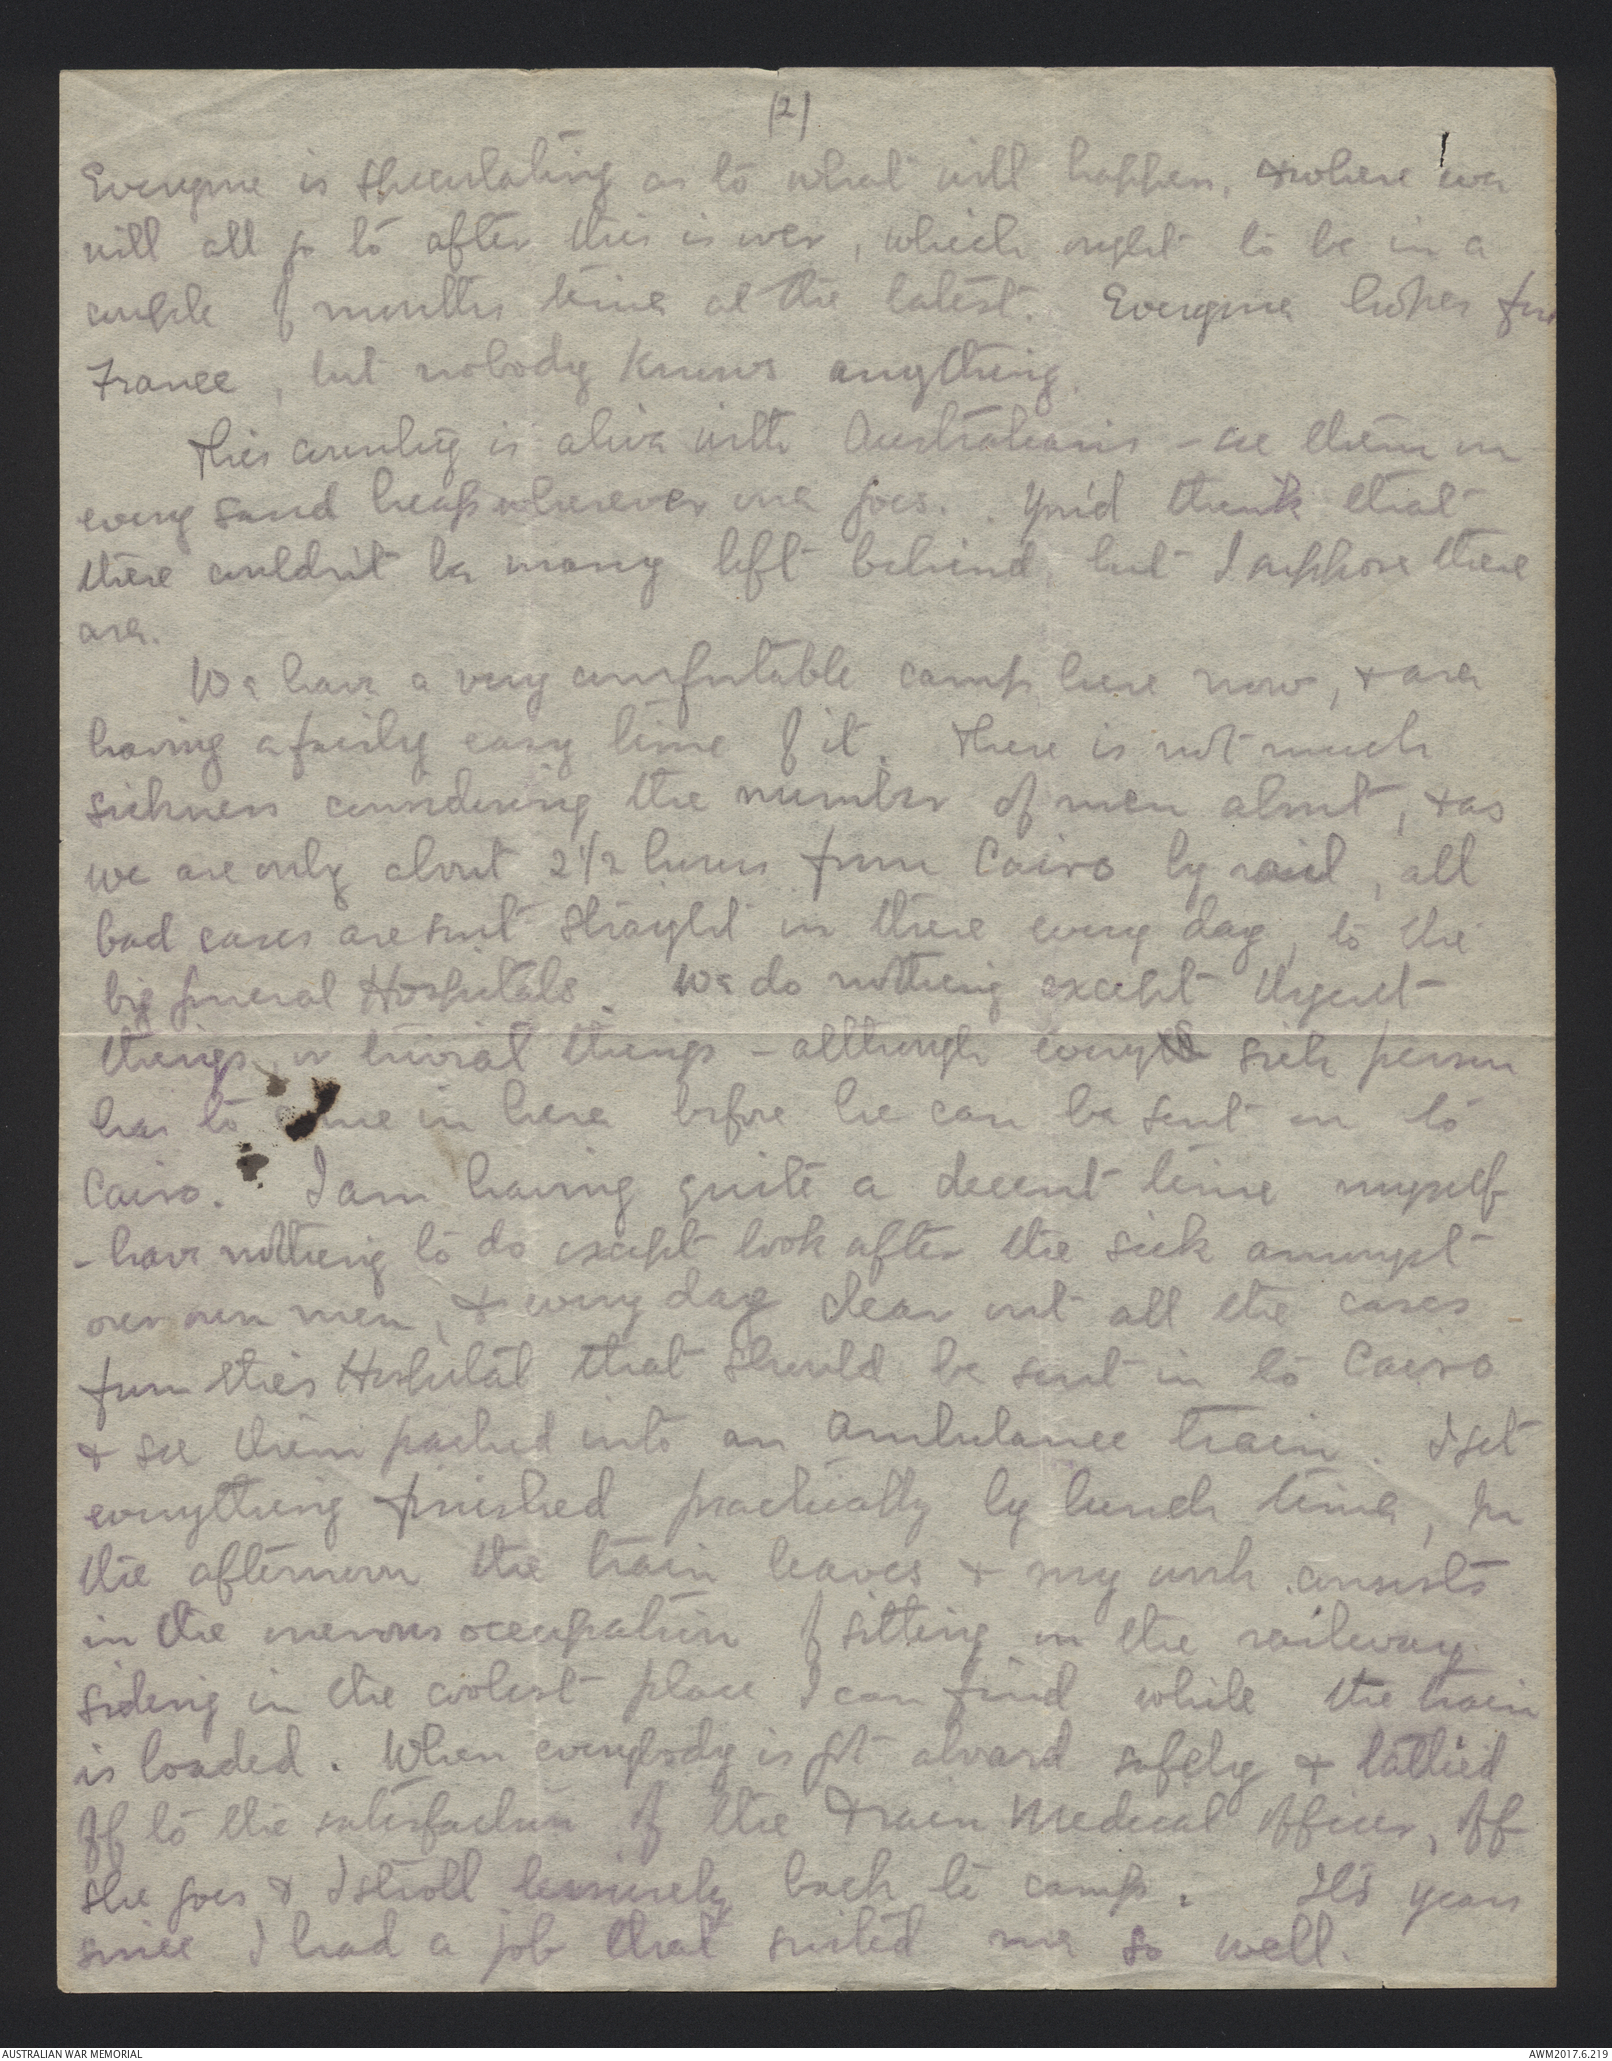 (2)
Everyone is speculating as to what will happen, & where we
will all go to after this is over, which ought to be in a
couple of months time at the latest. Everyone hopes for
France, but nobody knows anything.
This country is alive with Australians - see them on
every sand heap wherever one goes. You'd think that
there couldn't be many left behind, but I suppose there
are.
We have a very comfortable camp here now, & are
having a fairly easy time of it. There is not much
sickness considering the number of men about, & as
we are only about 2 1/2 hours from Cairo by rail, all
bad cases are sent straight in there every day, to the
big general Hospitals. We do nothing except Urgent
things, or trivial things - although every sick person
has to come in here before he can be sent on to
Cairo. I am having quite a decent time myself
- have nothing to do except look after the sick amongst
our own men, & every day clear out all the cases
from this Hospital that should be sent in to Cairo
& see them packed into an Ambulance train. I get
everything finished practically by lunch time, In
the afternoon the train leaves & my work consists
in the onerous occupation of sitting on the railway
siding in the coolest place I can find while the train
is loaded. When everybody is got aboard safely & tallied
off to the satisfaction of the Train Medical Officer, off
she goes & I stroll leisurely back to camp. It's years
since I had a job that suited me so well.
AUSTRALIAN WAR MEMORIAL
AWM2017.6.219